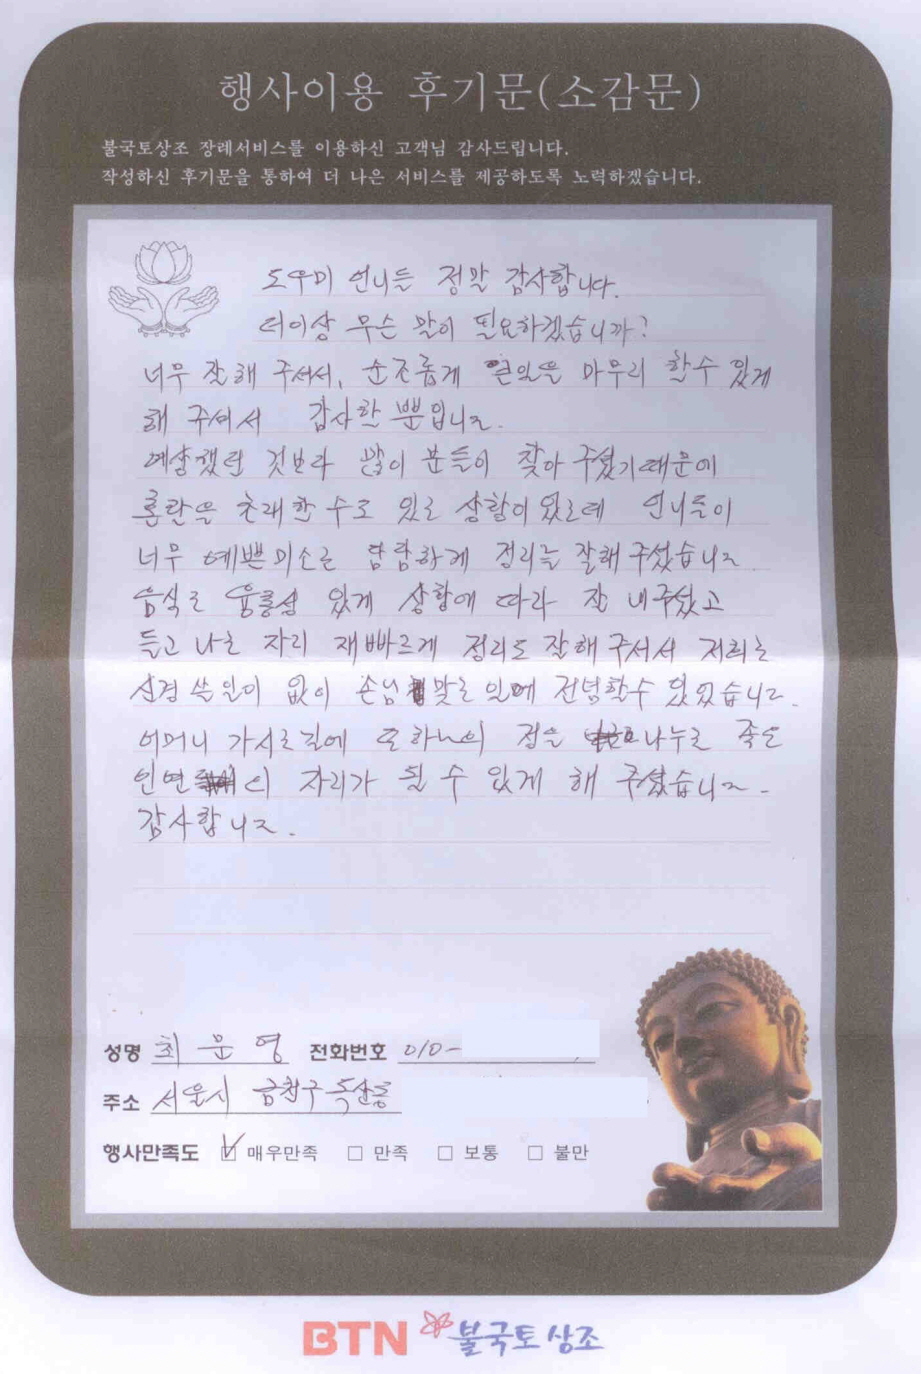 행사이용 후기문(소감문)
불국토상조 장례서비스를 이용하신 고객님 감사드립니다.
작성하신 후기문을 통하여 더 나은 서비스를 제공하도록 노력하겠습니다.
도우미 언니들 정말 감사합니다.
더이상 무슨 말이 필요하겠습니까?
너무 잘해 주셔서, 순조롭게 큰일을 마무리 할수 있게
해 주셔서 감사할 뿐입니다.
예상했던 것보다 많이 분들이 찾아 주셨기때문에
혼란을 초래할 수도 있는 상황이었는데 언니들이
너무 예쁜미소로 담담하게 정리를 잘해 주셨습니다
음식도 융통성 있게 상황에 따라 잘 내주셨고
들고 나는 자리 재빠르게 정리도 잘해 주셔서 저희는
신경 쓸일이 없이 손님 맞는 일에 전념할수 있었습니다.
어머니 가시는길에 또 하나의 정을 나누는 좋은
인연의 자리가 될 수 있게 해 주셨습니다.
감사합니다.
성명 최문영 전화번호 010-
주소 서울시 금천구 독산동
행사만족도 매우만족 만족 보통 불만
BTN 불국토상조